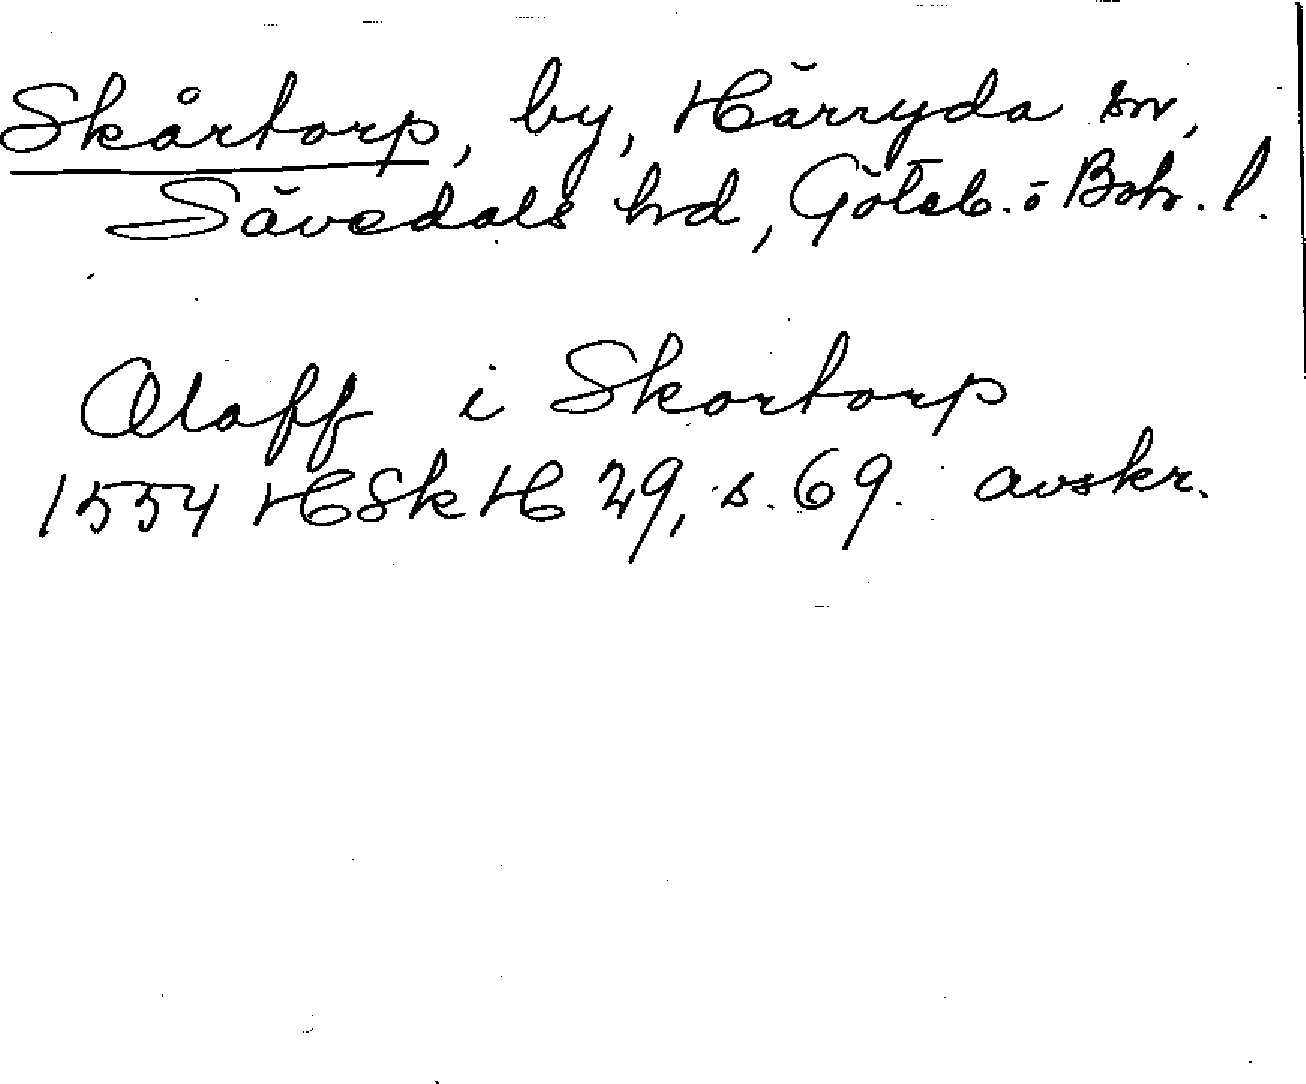 Skårtorp, by, Härryda sn,
Sävedals hd, Göteb. ö Boh. l.
Oloff i Skortorp
1554 HSkH 29, s. 69. avskr.